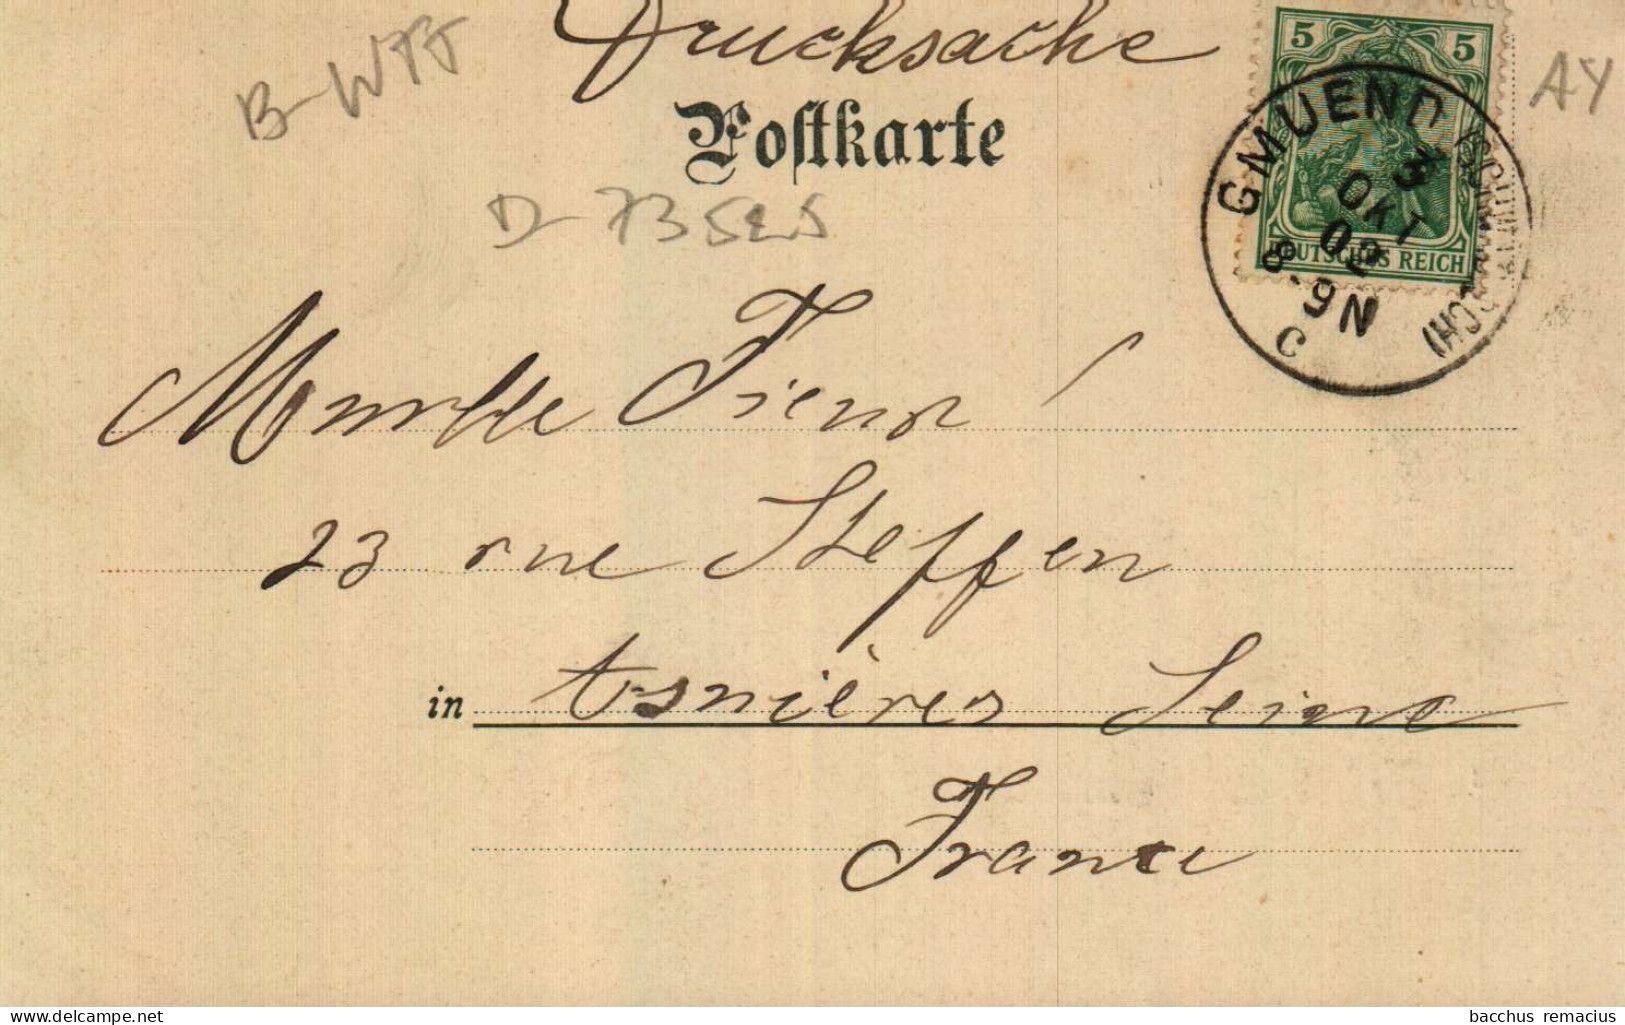 Drucksache
B-WTT
AY
Postkarte
D-73525
5 5
DEUTSCHES REICH
GMUEND (SCHWÄB.
3
OKT
02
8-9N
C
Fieux
23 rue Steffen
in Asnières Seine
France
delcampe.net
bacchus remacius